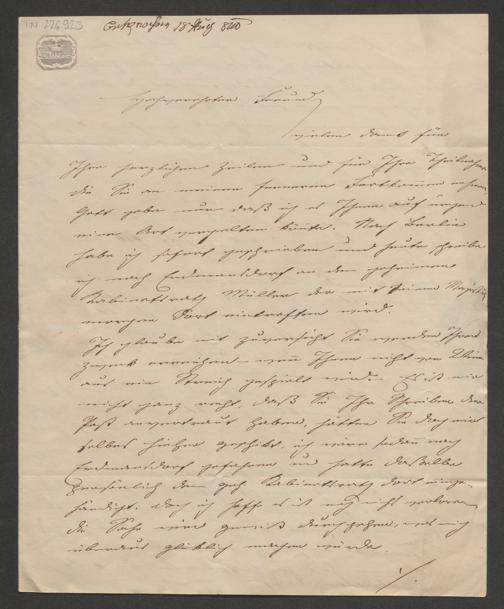 I.N. 226.923
18 Aug 840
Hochverehrter Freund,
vielen Dank für
Ihre herzlichen Zeilen und für Ihre Theilnahme
die Sie an meinem ferneren Fortkommen nehmen
Gott gebe nur daß ich es Ihnen auf irgend
eine Art vergelten könnte. Nach Berlin
habe ich sofort geschrieben und heute schreibe
ich nach Erdmansdorf an den geheimen
Kabinetsrath Müller der mit Seiner Majestät
morgen Dort eintreffen wird.
Ich glaube mit Zuversicht Sie werden Ihren
Zweck erreichen wenn Ihnen nicht von Wien
aus ein Streich gespielt wird. Es ist mir
nicht ganz recht, daß Sie Ihr Schreiben der
Post anvertraut haben, hätten Sie doch
selbes hieher geschickt, ich wäre sodann nach
Erdmansdorf gefahren und hätte dasselbe
persönlich dem geh. Kabinetsrath dort einge-
händigt. Doch ich hoffe es ist noch nicht verloren
die Sache wird gewiß durchgehen, was mich
überaus glücklich machen würde.
./.